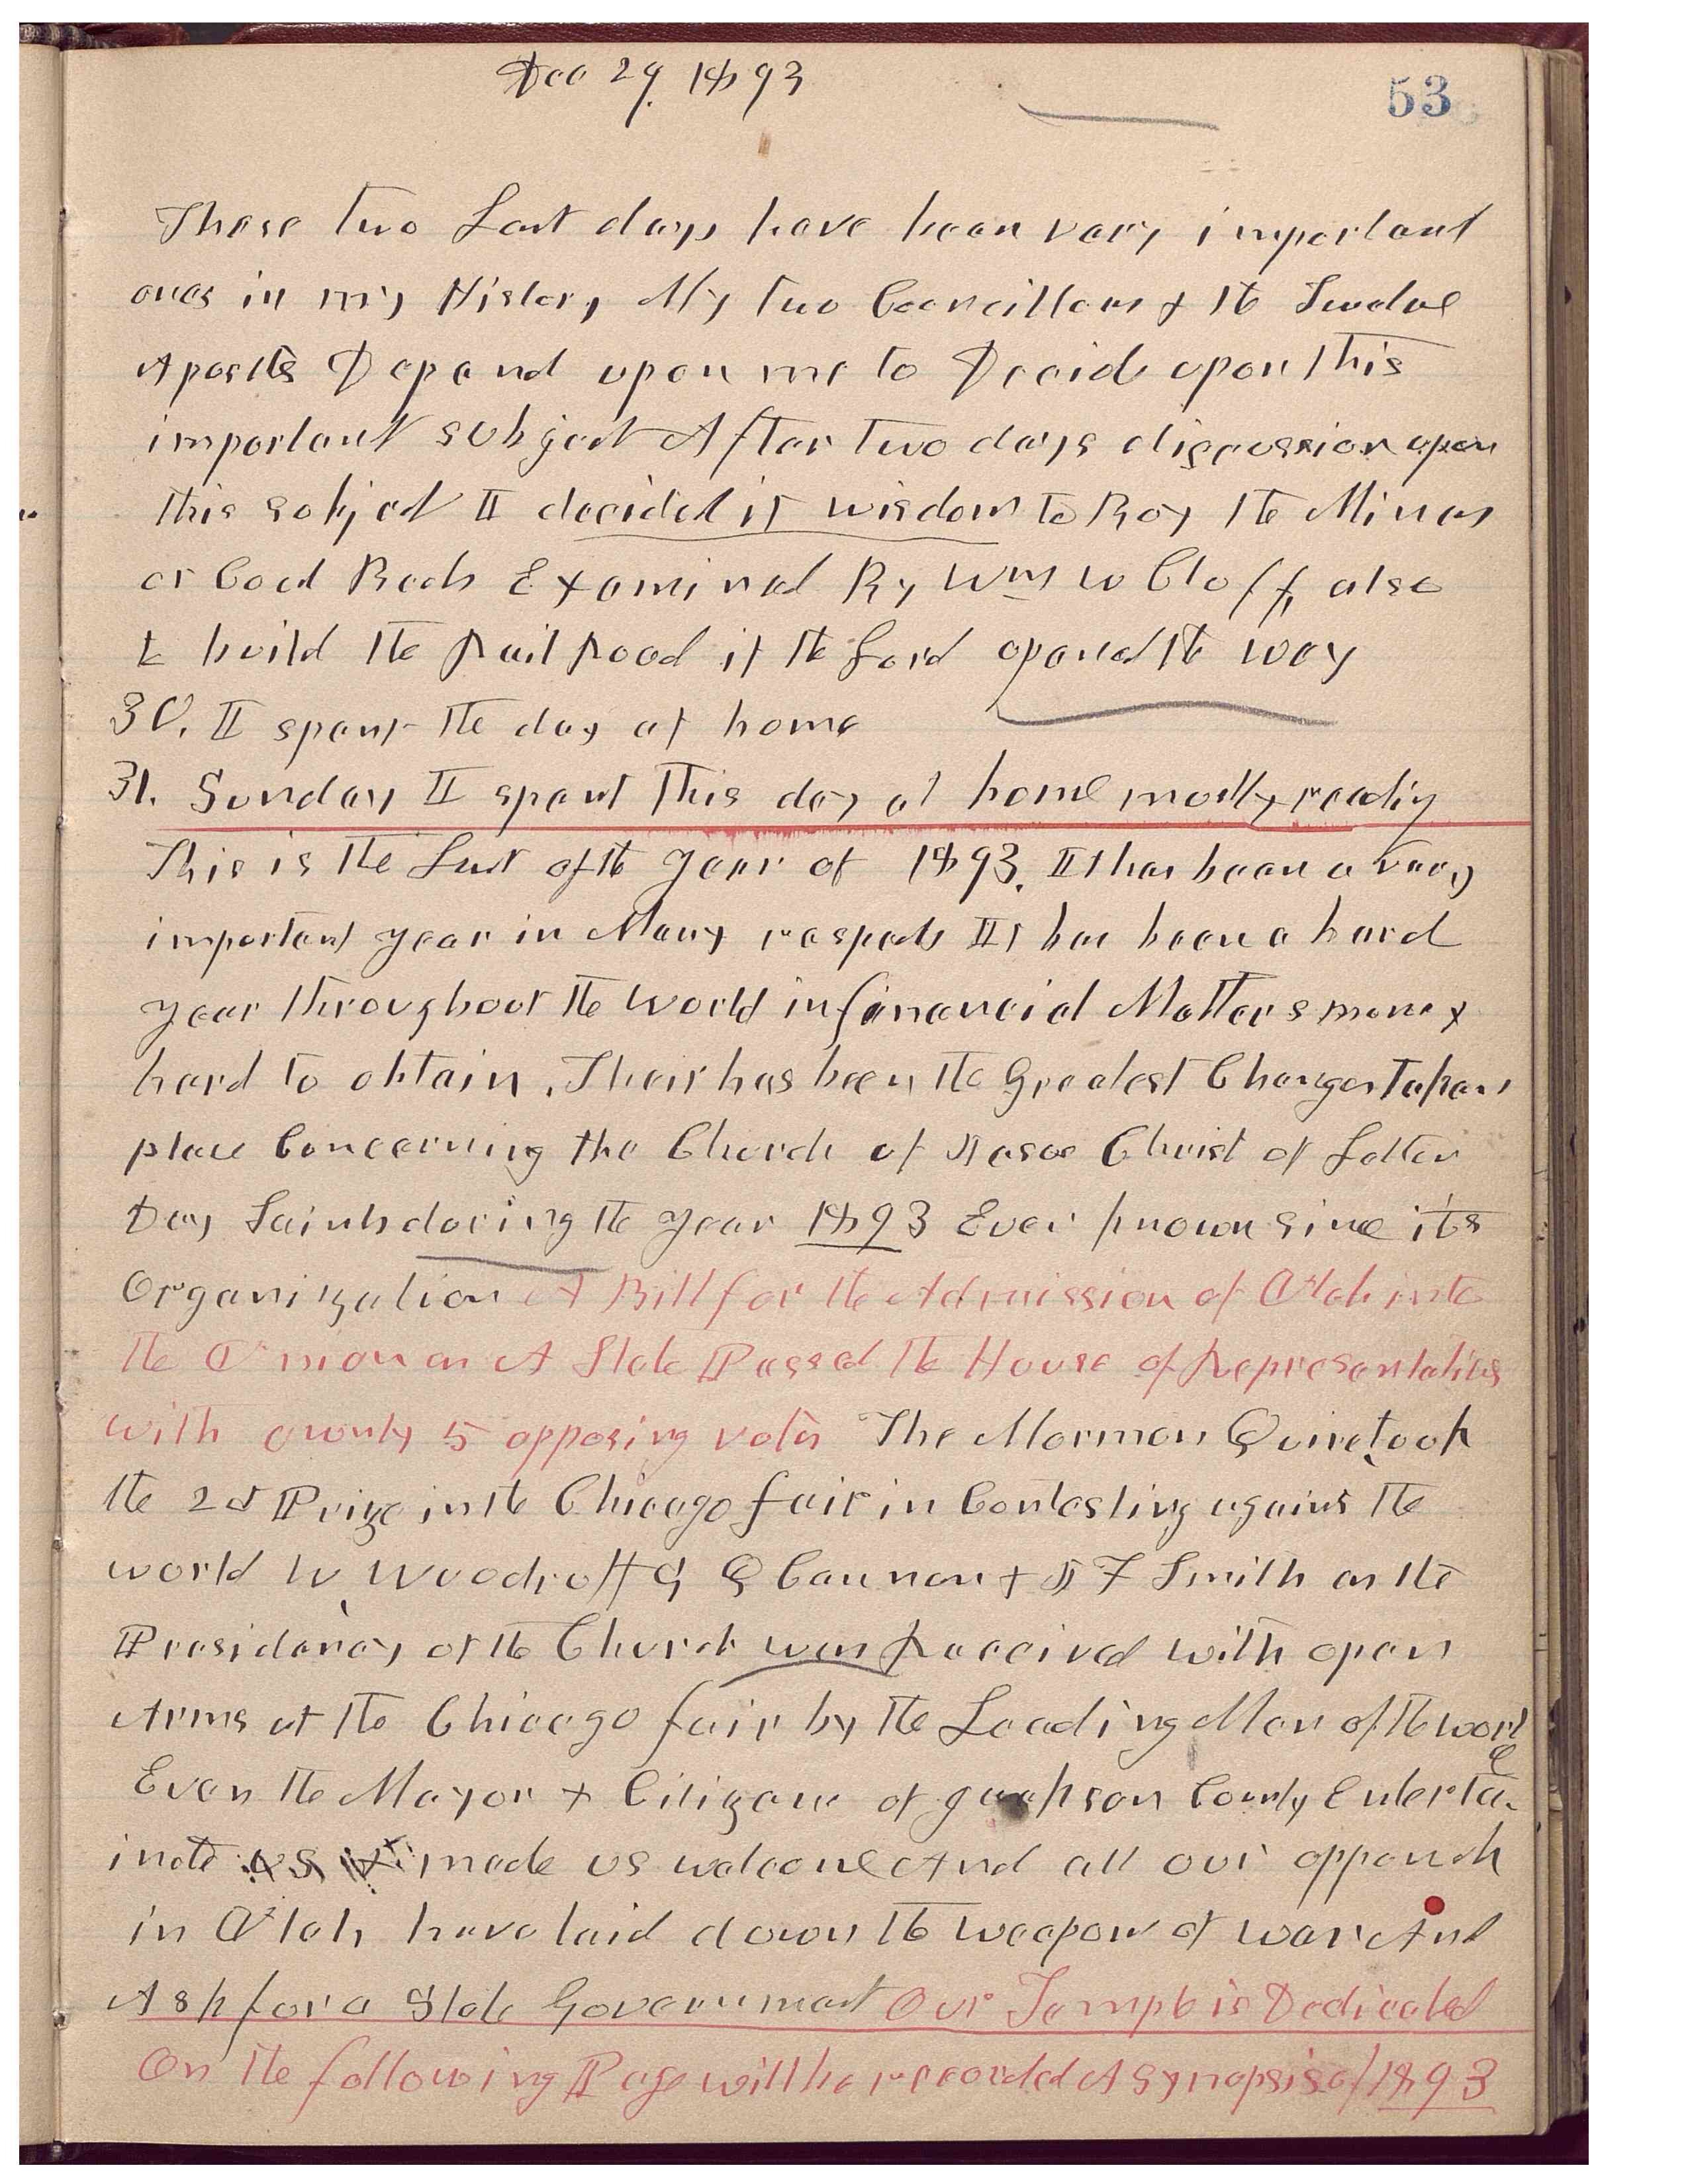 Dec 29. 1893
53
These two Last days have been vary important
ones in my History My two Councillors & the Twelve
Apostles Depend upon me to Decide upon this
important subject After two days discussion upon
this subject I decided it wisdom to Boy the Mines
or Coal Beds Examined By Wm W Cloff, also
to build the Rail Road if the Lord opened the way
30. I spent the day at home
31. Sunday I spent this day at home mostly reading
This is the Last of the year of 1893. It has been a vary
important year in Many respects It has been a hard
year throughout the world in financial Matters money
hard to obtain. Their has been the Greatest Changes Taken
place Concerning the Church of Jesus Christ of Latter
Day Saints during the year 1893 Ever known since its
Organization A Bill for the Admission of Utah into
the Union as A State Passed the House of Representatives
with ownly 5 opposing votes The Mormon Quire took
the 2d Prize in the Chicago fair in Contesting against the
world W Woodruff G Q Cannon & J F Smith as the
Presidency of the Church was Received with open
Arms at the Chicago fair by the Leading Men of the world
Even the Mayor & Citizans of Jackson County Enterta-
inded us & made us welcome And all our opponets
in Utah have laid down the weapons of war And
Ask for a State Government Our Temple is Dedicated
On the following Page will be recorded A synopsis of 1893